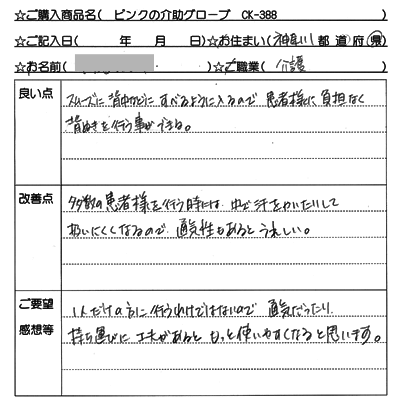 ☆ご購入商品名( ピンクの介助グローブ CK-388 )
☆ご記入日( 年 月 日)☆お住まい(神奈川 都 道 府 県)
☆お名前( )☆ご職業( 介護 )
良い点
スムーズに背中などにすべるように入るので 患者様に負担なく
背ぬきを行う事ができる。
改善点
多数の患者様を行う時には 中で汗をかいたりして
扱いにくくなるので 通気性もあるとうれしい。
ご要望
感想等
1人だけの方に行うわけではないので 通気だったり
持ち運びに工夫があると もっと使いやすくなると思います。